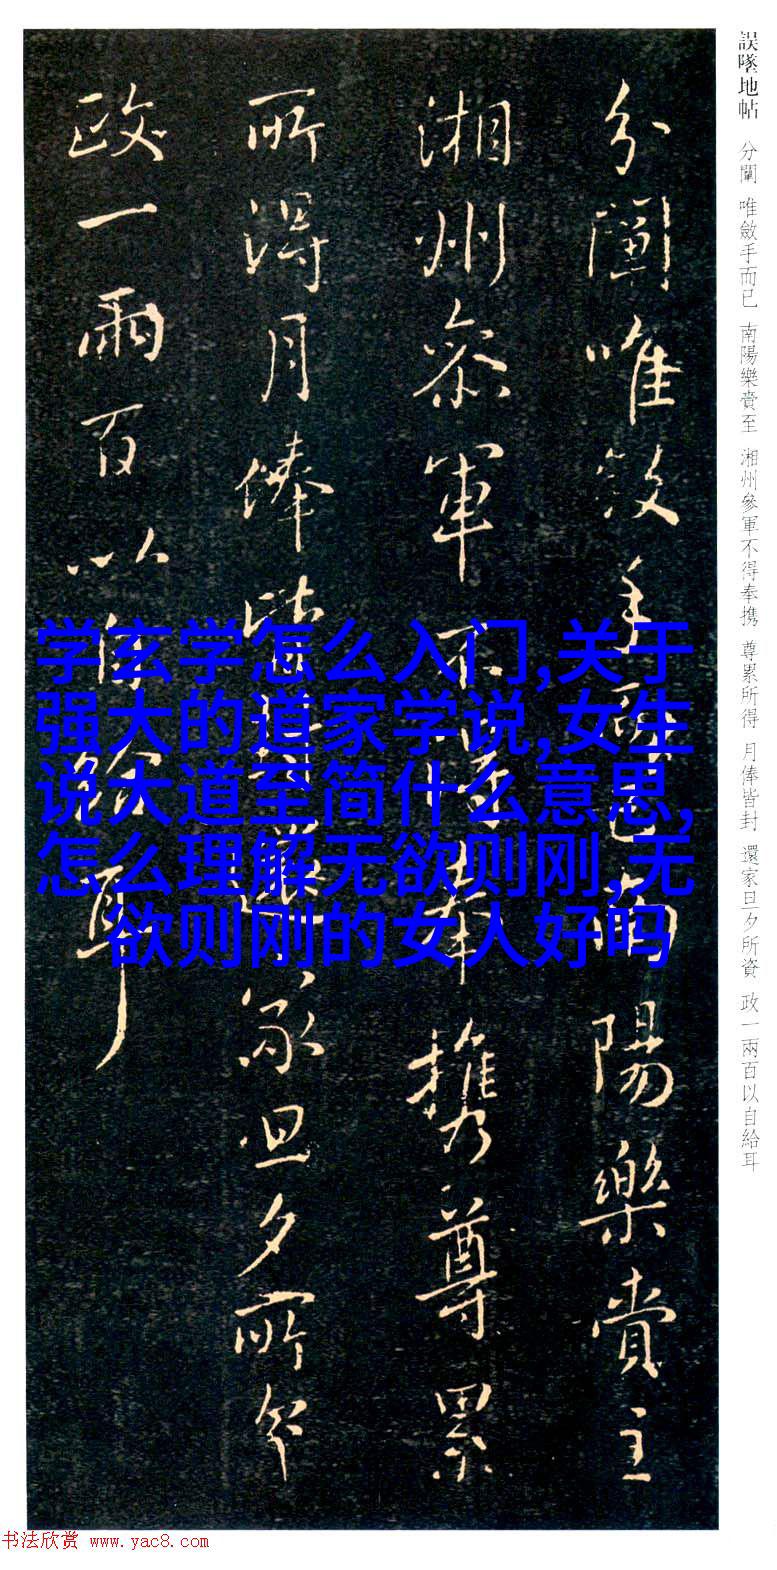 誤墜地帖 分闡 唯斂手而已 南陽樂賫至 湘州參軍不得奉携 尊累所得 月俸皆封 還家旦夕所資 政一兩百以自給耳
分闡唯斂手而已南陽樂賫至
湘州參軍不得奉携尊累
所得月俸皆封還家旦夕所資
政一兩百以自給耳
学玄学怎么入门,关于
强大的道家学说,女生
说大道至简什么意思,
怎么理解无欲则刚,无
欲则刚的女人好吗
书法欣赏 www.yac8.com